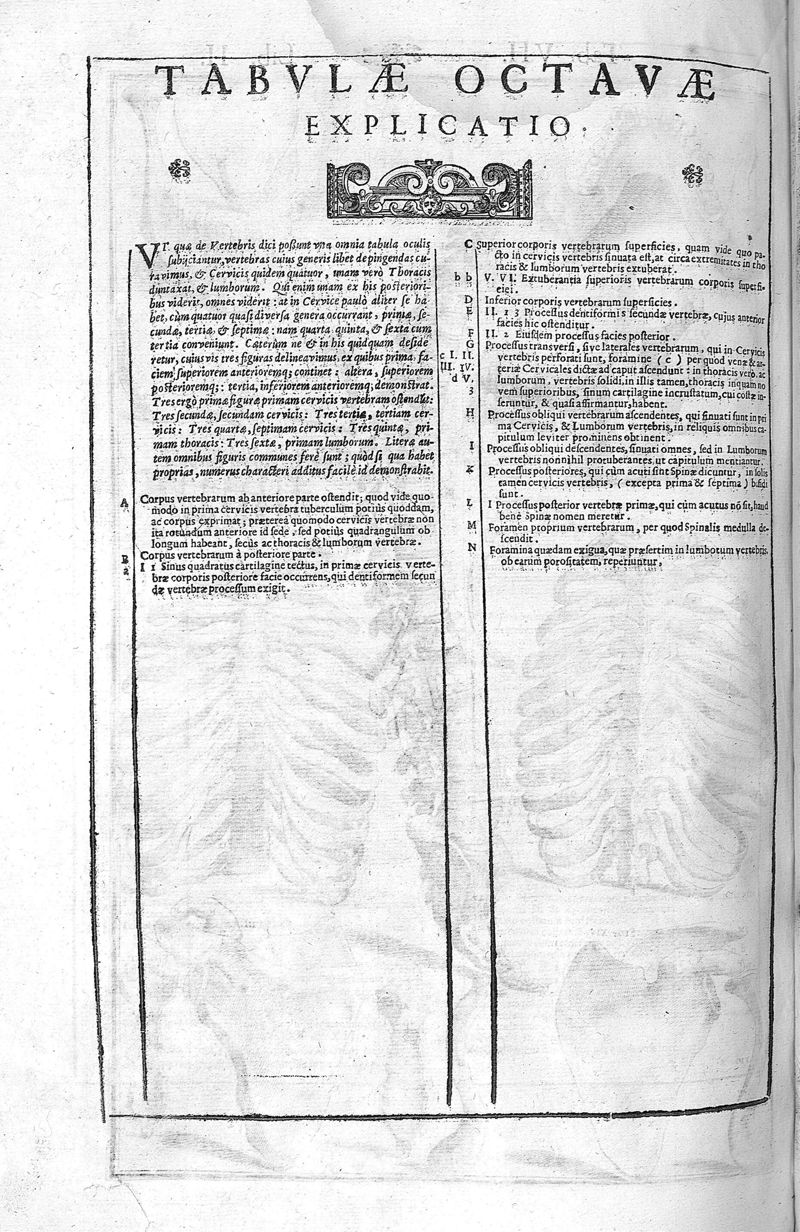 TABVLÆ OCTAVÆ
EXPLICATIO.
VT quæ de Vertebris dici poſſunt vna omnia tabula oculis
ſubijciantur, vertebras cuius generis libet depingendas cu-
rauimus, & Ceruicis quidem quatuor, vnam verò Thoracis
duntaxat, & lumborum. Qui enim unam ex his poſteriori-
bus viderit, omnes viderit: at in Ceruice paulò aliter ſe ha-
bet, cùm quatuor quaſi diuerſa genera occurrant, primæ, ſe-
cundæ, tertiæ, & ſeptimæ: nam quarta quinta, & ſexta cum
tertia conueniunt. Cæterùm ne & in his quidquam deſide
retur, cuius vis tres figuras delineauimus, ex quibus prima, fa-
ciem ſuperiorem anterioremq; continet: altera, ſuperiorem
poſterioremq;: tertia, inferiorem anterioremq; demonſtrat.
Tres ergò primæ figuræ primam ceruicis vertebram oſtendũt:
Tres ſecundæ, ſecundam ceruicis: Tres tertiæ, tertiam cer-
uicis: Tres quartæ, ſeptimam ceruicis: Tres quintæ, pri-
mam thoracis: Tres ſextæ, primam lumborum. Literæ au-
tem omnibus figuris communes ferè ſunt: quòd ſi qua habet
proprias, numerus charaćteri additus facilè id demonſtrabit.
A Corpus vertebrarum ab anteriore parte oſtendit; quod vide, quo-
modo in prima ceruicis vertebra tuberculum potiùs quoddam,
ac corpus exprimat; præterea quomodo ceruicis vertebræ non
ita rotundum anteriore id ſede, ſed potiùs quadrangulum ob
longum habeant, ſecùs ac thoracis & lumborum vertebræ.
B Corpus vertebrarum à poſteriore parte.
a I 1 Sinus quadratus cartilagine tectus, in primæ ceruicis verte-
bræ corporis poſteriore facie occurrens, qui dentiformem ſecun
dæ vertebræ proceſſum exigit.
C Superior corporis vertebrarum ſuperficies, quam vide quo pa-
cto in ceruicis vertebris ſinuata eſt, at circa extremitates in tho
racis & lumborum vertebris extuberat.
b b V. VI. Extuberantia ſuperioris vertebrarum corporis ſuperfi-
ciei.
D Inferior corporis vertebrarum ſuperficies.
E II. 1 3 Proceſſus dentiformis ſecundæ vertebræ, cuius anterior
facies hic oſtenditur.
F II. 2 Eiuſdem proceſſus facies poſterior.
G Proceſſus tranſuerſi, ſiue laterales vertebrarum, qui in Ceruicis
c I. II. vertebris perforati ſunt, foramine (c) per quod venæ & ar-
III. IV. teriæ Ceruicales dictæ ad caput aſcendunt: in thoracis verò, ac
d V. lumborum vertebris ſolidi, in iſtis tamen, thoracis inquam no
3 vem ſuperioribus, ſinum cartilagine incruſtatum, cui coſtæ in-
ſeruntur, & quaſi affirmantur, habent.
H Proceſſus obliqui vertebrarum aſcendentes, qui ſinuati ſunt in pri
ma Ceruicis, & Lumborum vertebris, in reliquis omnibus ca-
pitulum leuiter prominens obtinent.
I Proceſſus obliqui deſcendentes, ſinuati omnes, ſed in Lumborum
vertebris nonnihil protuberantes, ut capitulum mentiantur.
K Proceſſus poſteriores, qui cùm acuti ſint Spinæ dicuntur, in ſolis
tamen ceruicis vertebris, (excepta prima & ſeptima) bifidi
ſunt.
L I Proceſſus poſterior vertebræ primæ, qui cùm acutus nõ ſit, haud
benè Spinæ nomen meretur.
M Foramen proprium vertebrarum, per quod Spinalis medulla de-
ſcendit.
N Foramina quædam exigua, quæ præſertim in lumborum vertebris,
ob earum poroſitatem, reperiuntur,